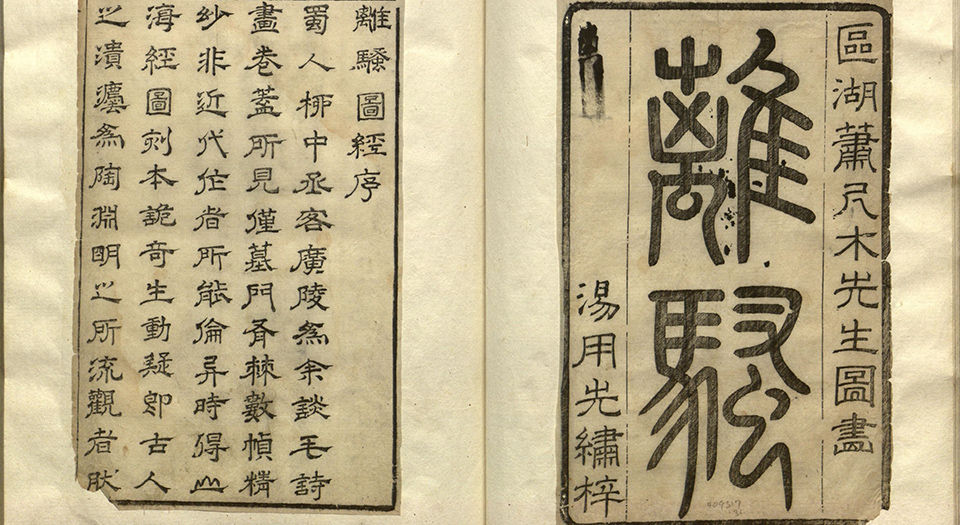 區湖蕭尺木先生圖畫
離騷
湯用先繡梓
離騷圖經序
蜀人桺中丞客廣陵爲余談毛詩
畫卷葢所見僅墓門有棘數幀精
玅非近代作者所能倫异時得山
海經圖刻本詭奇生動疑即古人
之爲陶淵明之所流觀者肰